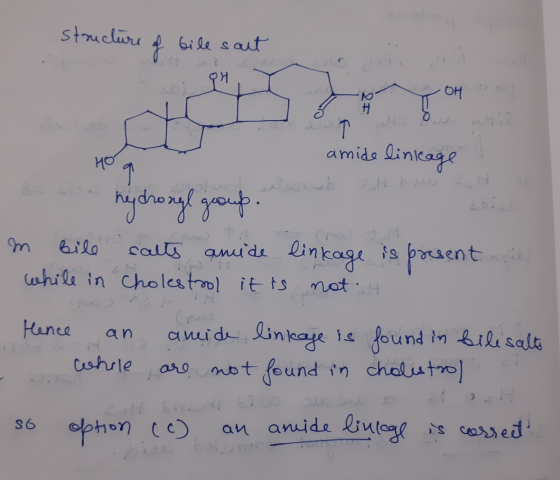 structure of bile salt
OH
N
H
OH
O
O
HO
amide linkage
hydroxyl group.
In bile salts amide linkage is present
while in cholestrol it is not.
Hence an amide linkage is found in bile salts
while are not found in cholustrol
so option (c) an amide linkage is correct